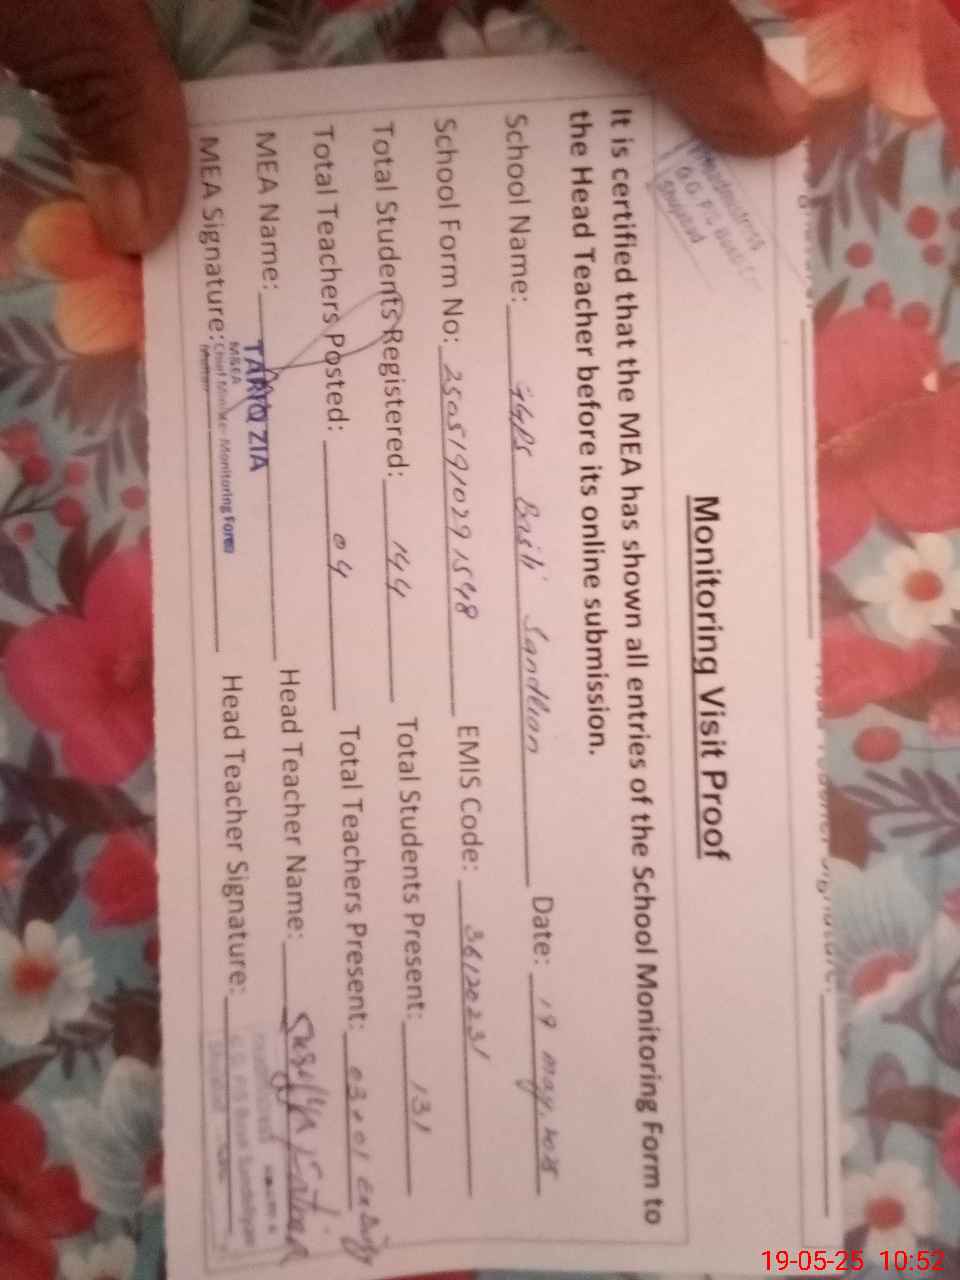 Monitoring Visit Proof
It is certified that the MEA has shown all entries of the School Monitoring Form to
the Head Teacher before its online submission.
School Name: GGPS Basti Sandhian Date: 19 may,
School Form No: 2505191029 1548 EMIS Code: 36120231
Total Students Registered: 144 Total Students Present: 131
Total Teachers Posted: 04 Total Teachers Present: 03
MEA Name: TARIQ ZIA Head Teacher Name:
M&EA
MEA Signature: Chief Monitoring Force Head Teacher Signature:
19-05-25 10:52